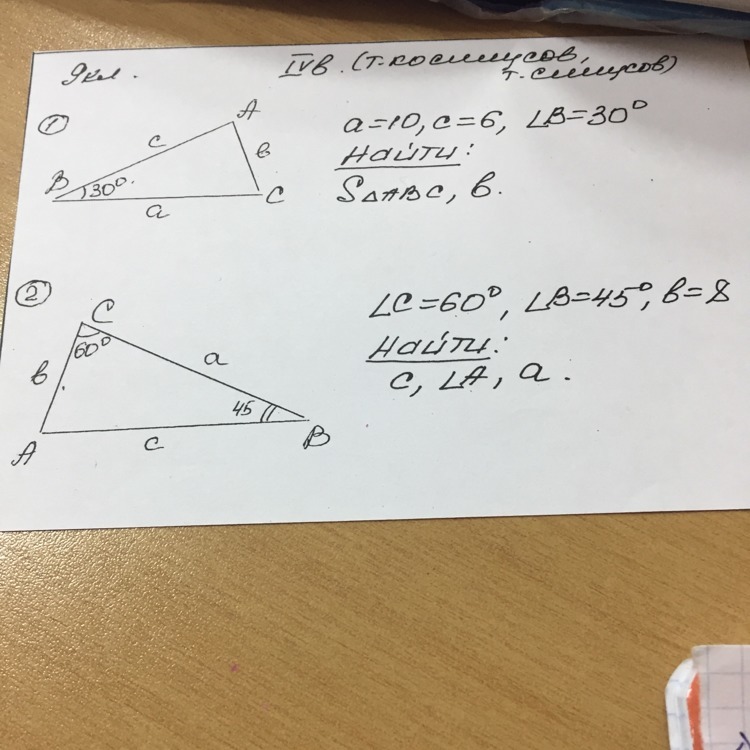 9кл. IVв. (т. косинусов, т. синусов)
①
A
c
в
B
30°.
a
C
a=10, c=6, ∠B=30°
Найти:
S△ABC, в.
②
C
60°
в
a
45
A
c
B
∠C=60°, ∠B=45°, в=8
Найти:
c, ∠A, a.